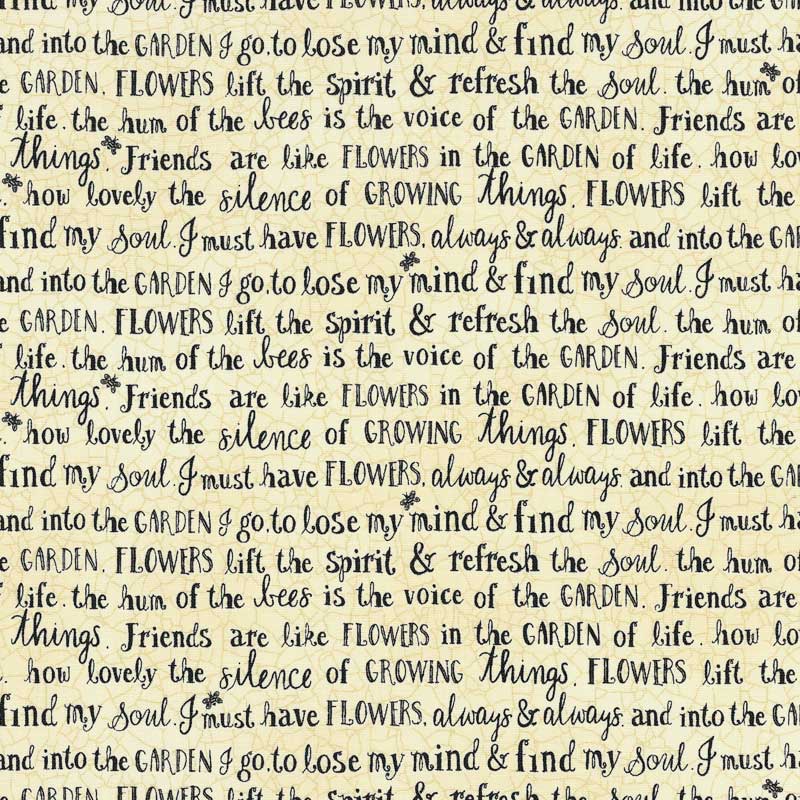 find my soul. I must have FLOWERS, always & always. and into the
and into the GARDEN I go, to lose my mind & find my soul. I must ha
e GARDEN. FLOWERS lift the spirit & refresh the soul. the hum of
life. the hum of the bees is the voice of the GARDEN. Friends are
things. Friends are like FLOWERS in the GARDEN of life. how lo
. how lovely the silence of GROWING things. FLOWERS lift the
find my soul. I must have FLOWERS, always & always. and into the GA
and into the GARDEN I go, to lose my mind & find my soul. I must ha
e GARDEN. FLOWERS lift the spirit & refresh the soul. the hum o
life. the hum of the bees is the voice of the GARDEN. Friends are
things. Friends are like FLOWERS in the GARDEN of life. how lo
. how lovely the silence of GROWING things. FLOWERS lift the
find my soul. I must have FLOWERS, always & always. and into the GA
and into the GARDEN I go, to lose my mind & find my soul. I must ha
e GARDEN. FLOWERS lift the spirit & refresh the soul. the hum o
life. the hum of the bees is the voice of the GARDEN. Friends are
things. Friends are like FLOWERS in the GARDEN of life. how lo
. how lovely the silence of GROWING things. FLOWERS lift the
find my soul. I must have FLOWERS, always & always. and into the GA
and into the GARDEN I go, to lose my mind & find my soul. I must ha
e GARDEN. FLOWERS lift the spirit & refresh the soul. the hum of